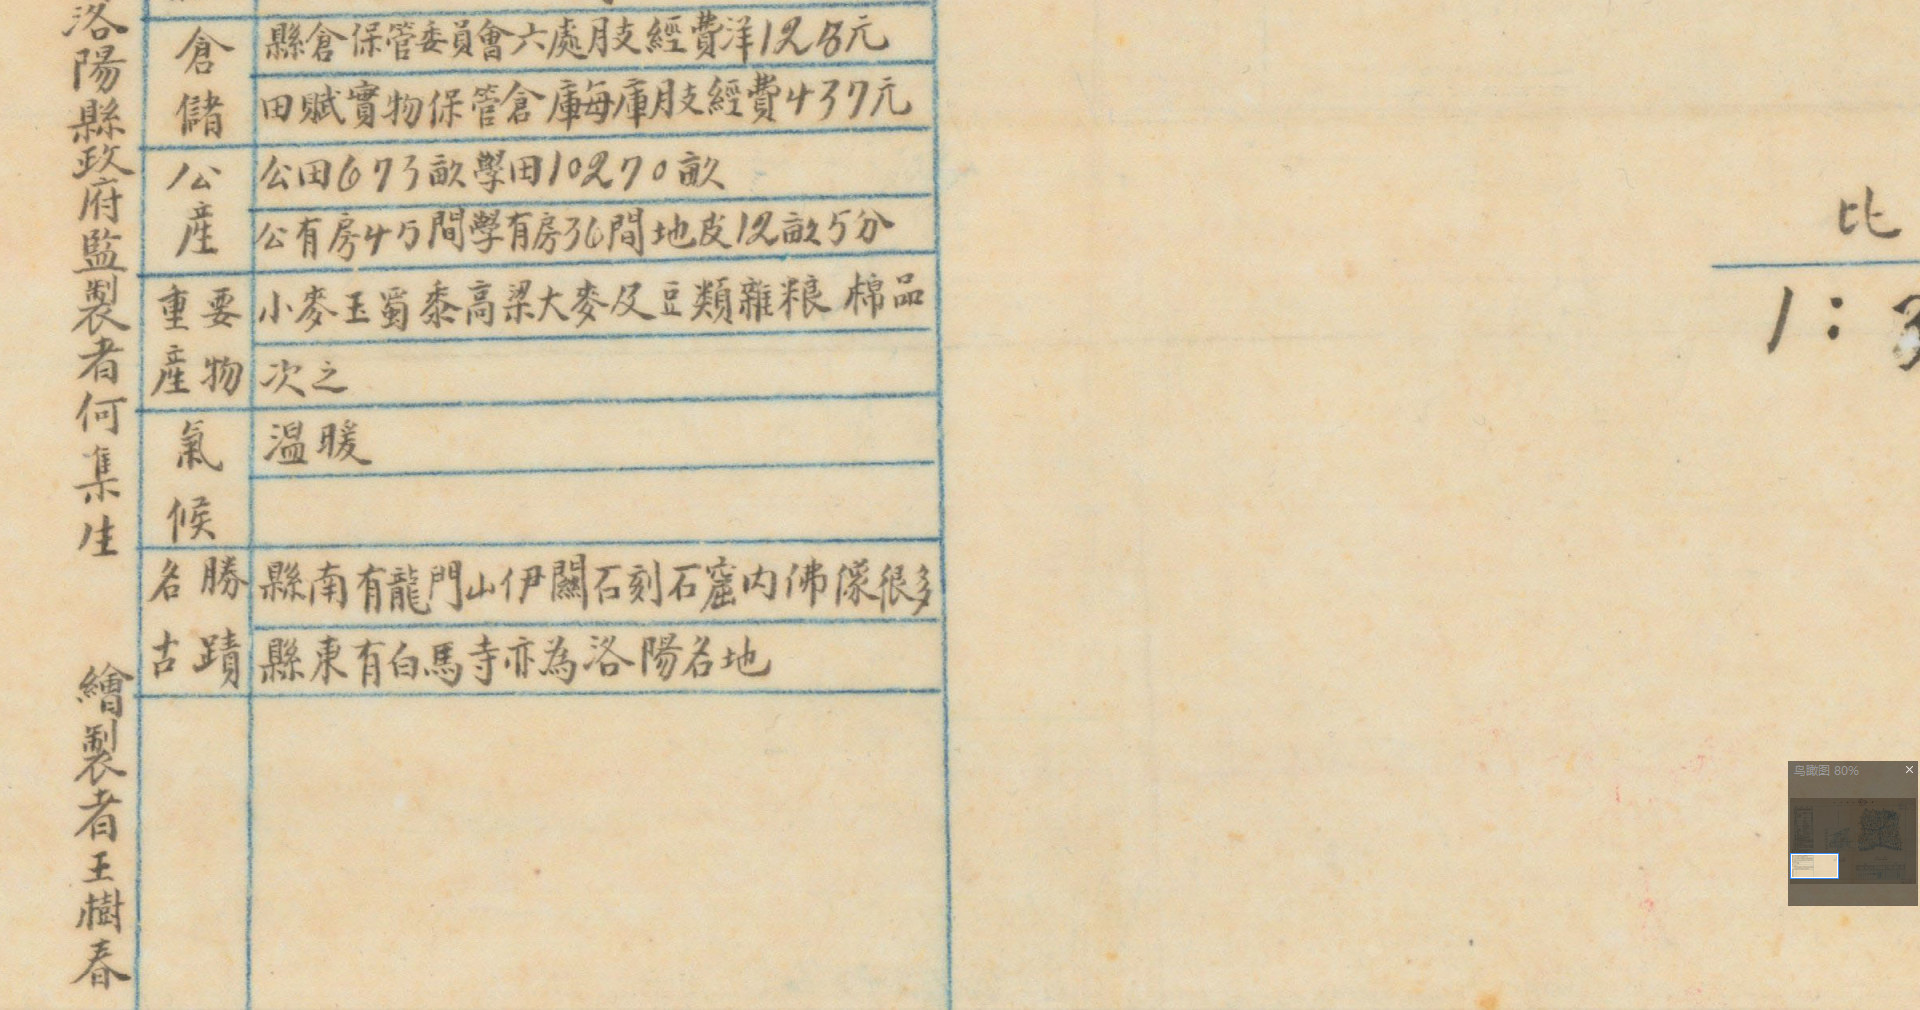 洛陽縣政府監製者何集生 繪製者王樹春
倉儲
縣倉保管委員會六處月支經費洋128元
田賦實物保管倉庫每庫月支經費437元
公產
公田673畝學田10270畝
公有房45間學有房36間地皮12畝5分
重要產物
小麥玉蜀黍高梁大麥及豆類雜粮 棉品
次之
氣候
温暖
名勝古蹟
縣南有龍門山伊闕石刻石窟内佛像很多
縣東有白馬寺亦為洛陽名地
比
1:3
鸟瞰图 80%